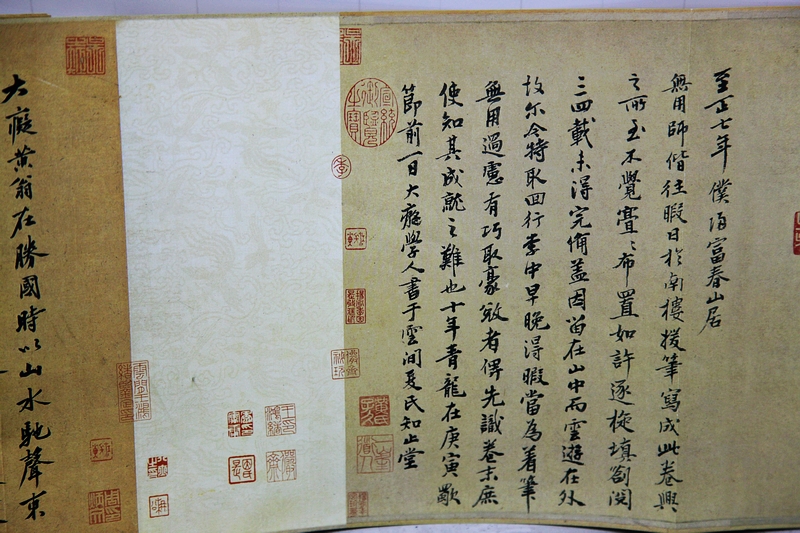 至正七年僕歸富春山居
無用師偕往暇日於南樓援筆寫成此卷興
之所至不覺亹〻布置如許逐旋填劄閱
三四載未得完備蓋因留在山中而雲遊在外
故尔今特取回行李中早晚得暇當為着筆
無用過慮有巧取豪敓者俾先識卷末庶
使知其成就之難也十年青龍在庚寅歜
節前一日大癡學人書于雲間夏氏知止堂
大癡黃翁在勝國時以山水馳聲東